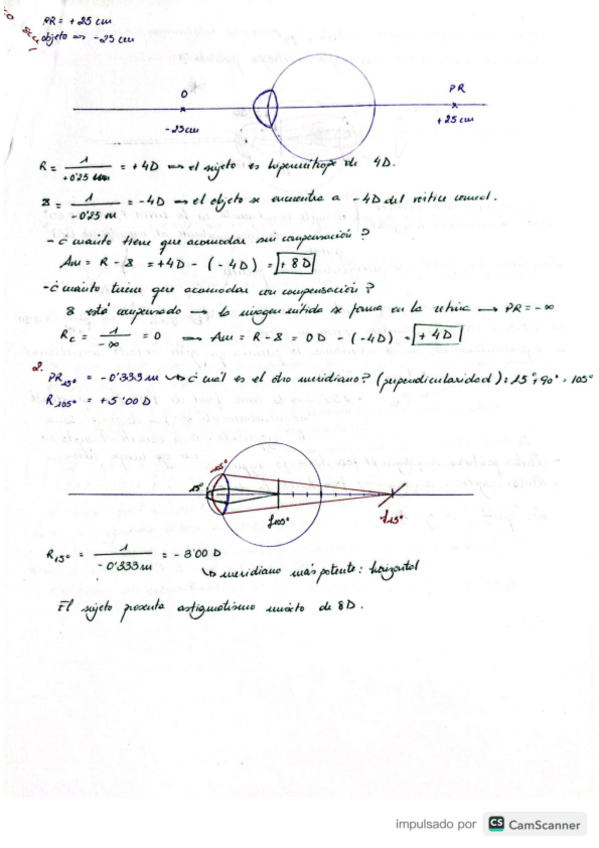 PR = +25 cm
objeto => -25 cm
O
PR
-25cm
+25 cm
R = 1 / +0'25 m = +4D => el sujeto es hipermétrope de 4D.
8 = 1 / -0'25 m = -4D => el objeto se encuentra a -4D del vértice corneal.
- ¿cuánto tiene que acomodar sin compensación?
Am = R - 8 = +4D - (-4D) = +8D
- ¿cuánto tiene que acomodar con compensación?
8 está compensado → la imagen nítida se forma en la retina → PR = -∞
Rc = 1 / -∞ = 0 => Am = R - 8 = 0D - (-4D) = +4D
2.
PR15° = -0'333m ↳ ¿cuál es el otro meridiano? (perpendicularidad): 15°+90° = 105°
R105° = +5'00 D
15°
f105°
f15°
R15° = 1 / -0'333m = -3'00 D
↳ meridiano más potente: horizontal
El sujeto presenta astigmatismo mixto de 8D.
impulsado por CS CamScanner